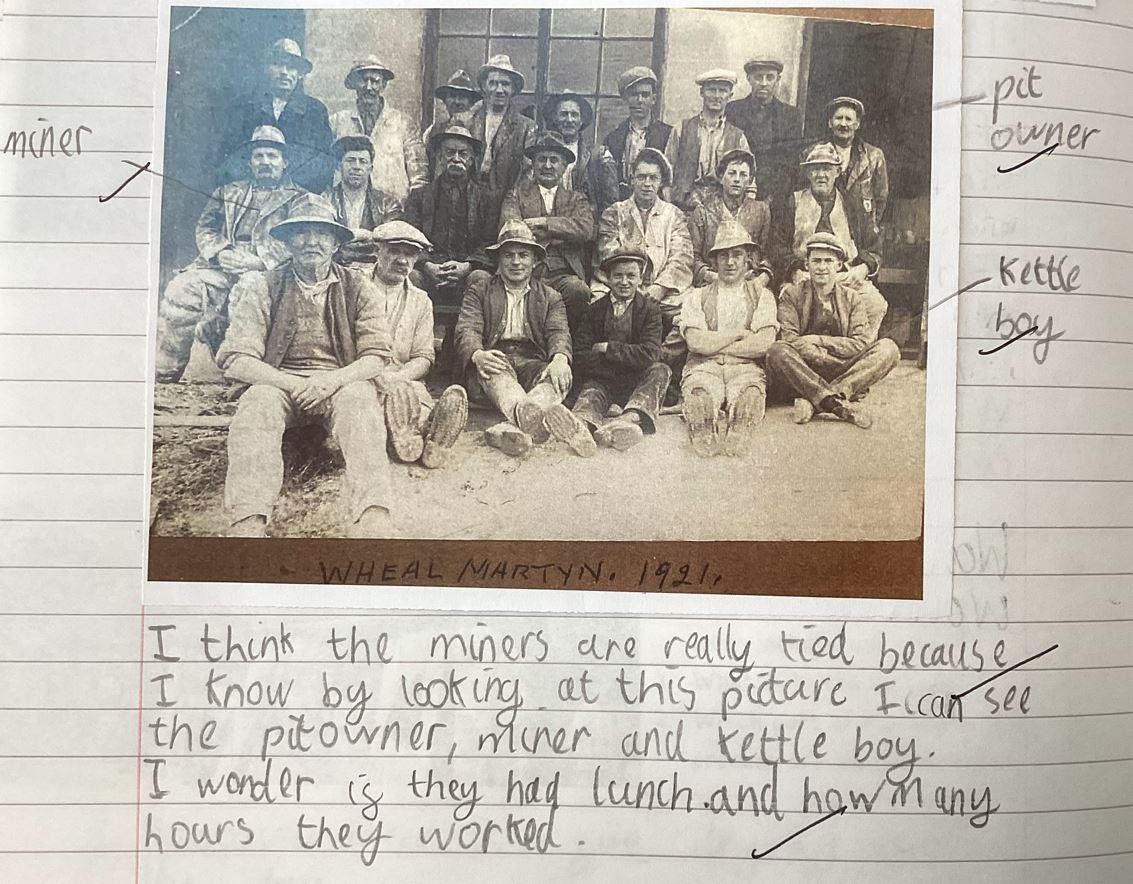 miner
pit
owner
kettle
boy
WHEAL MARTYN. 1921.
I think the miners are really tied because
I know by looking at this picture I can see
the pitowner, miner and kettle boy.
I wonder is they had lunch.and how many
hours they worked.